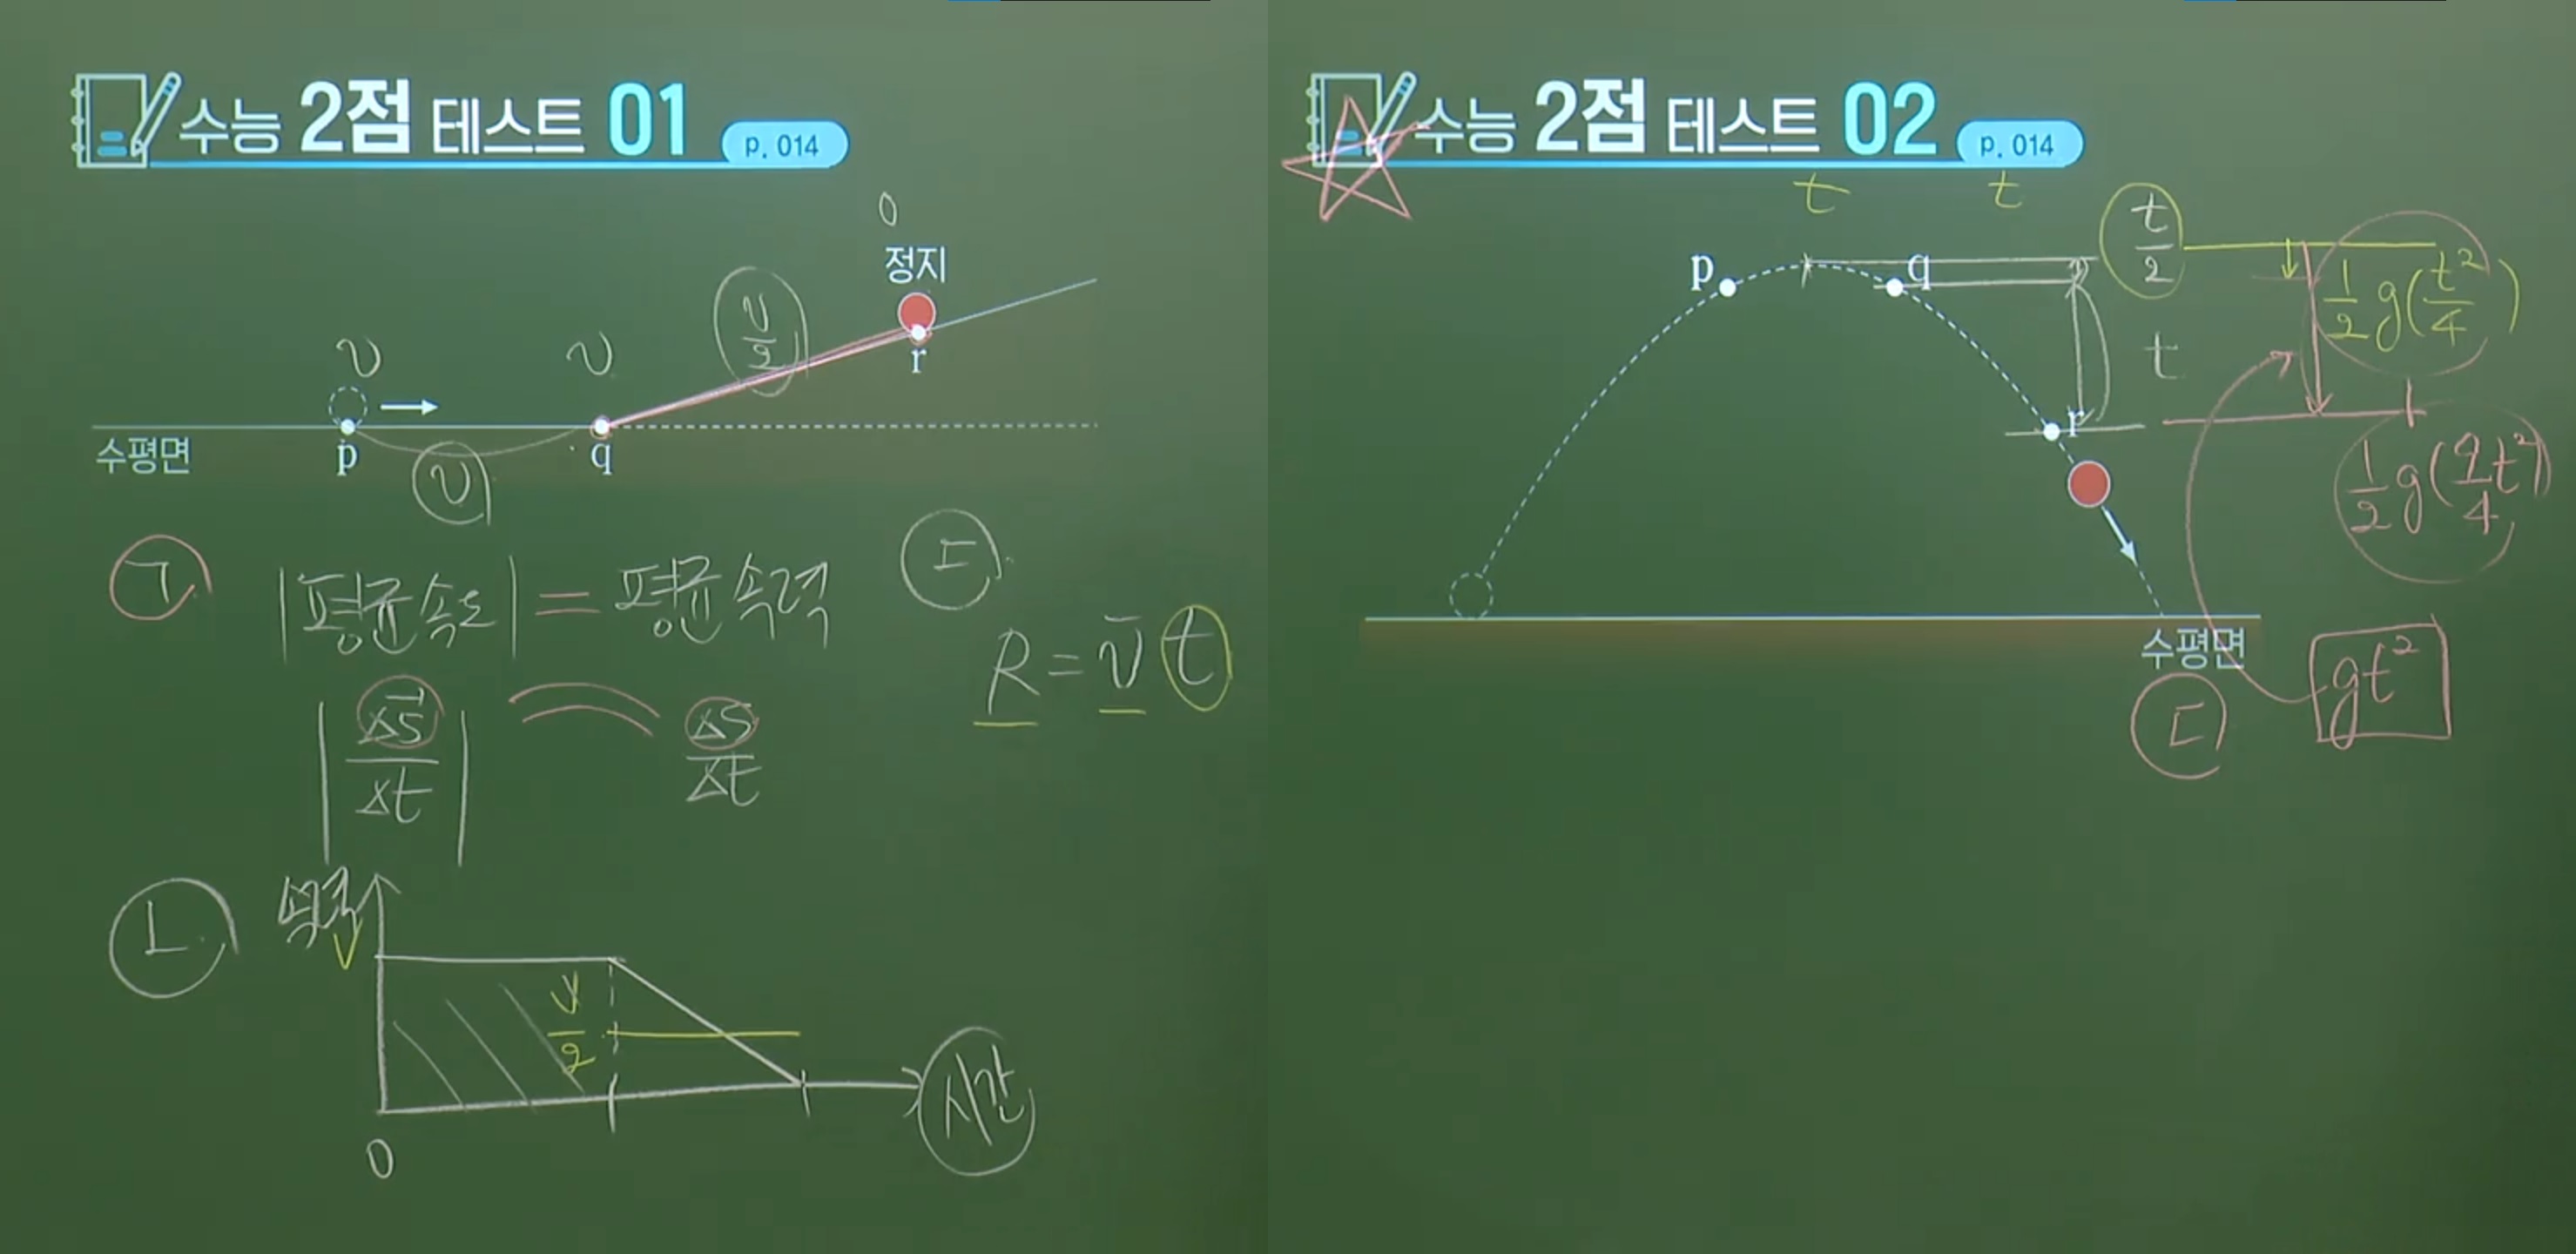 수능 2점 테스트 01 p. 014
0
정지
v
v
v/2
r
수평면
p
q
v
ㄱ
|평균속도| = 평균 속력
ㄷ
R = v̄ t
|Δs⃗/Δt|
Δs/Δt
ㄴ
속력
v
v/2
시간
0
수능 2점 테스트 02 p. 014
t
t
t/2
p
q
1/2 g(t²/4)
t
r
1/2 g(9/4 t²)
수평면
gt²
ㄷ